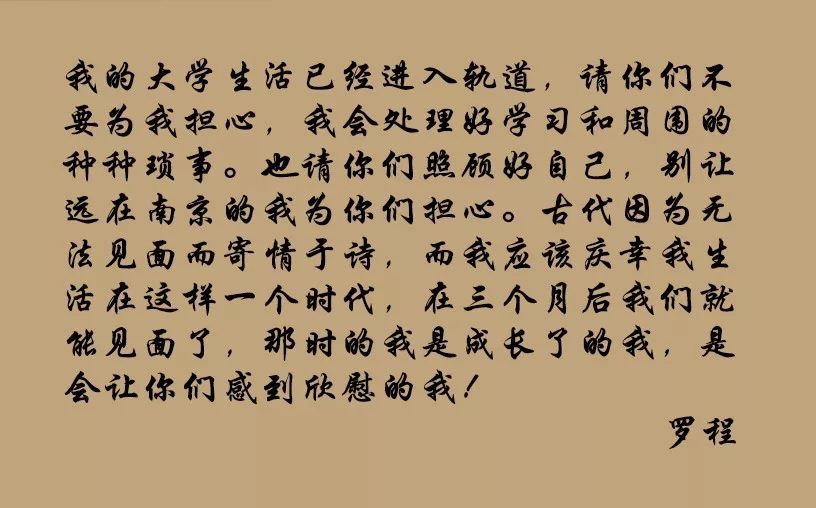 我的大学生活已经进入轨道，请你们不
要为我担心，我会处理好学习和周围的
种种琐事。也请你们照顾好自己，别让
远在南京的我为你们担心。古代因为无
法见面而寄情于诗，而我应该庆幸我生
活在这样一个时代，在三个月后我们就
能见面了，那时的我是成长了的我，是
会让你们感到欣慰的我！
罗程